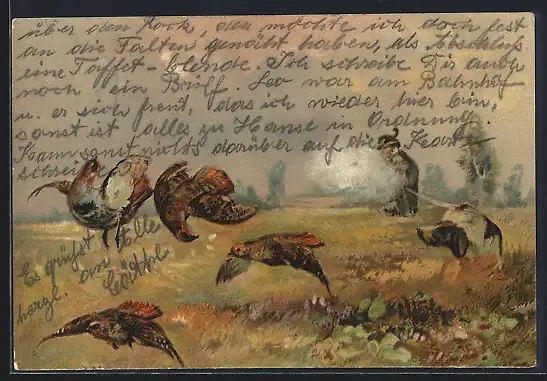 über den Rock, den möchte ich doch fest
an die Falten genäht haben, als Abschluß
eine Taffet-blende. Ich schreibe Dir auch
noch ein Brüff. Leo war am Bahnhof
u. er sich freut, das ich wieder hier bin,
sonst ist alles zu Hause in Ordnung.
Kann sonst nichts darüber auf die Karte
schreiben
Es grüßt
herzl. an Alle